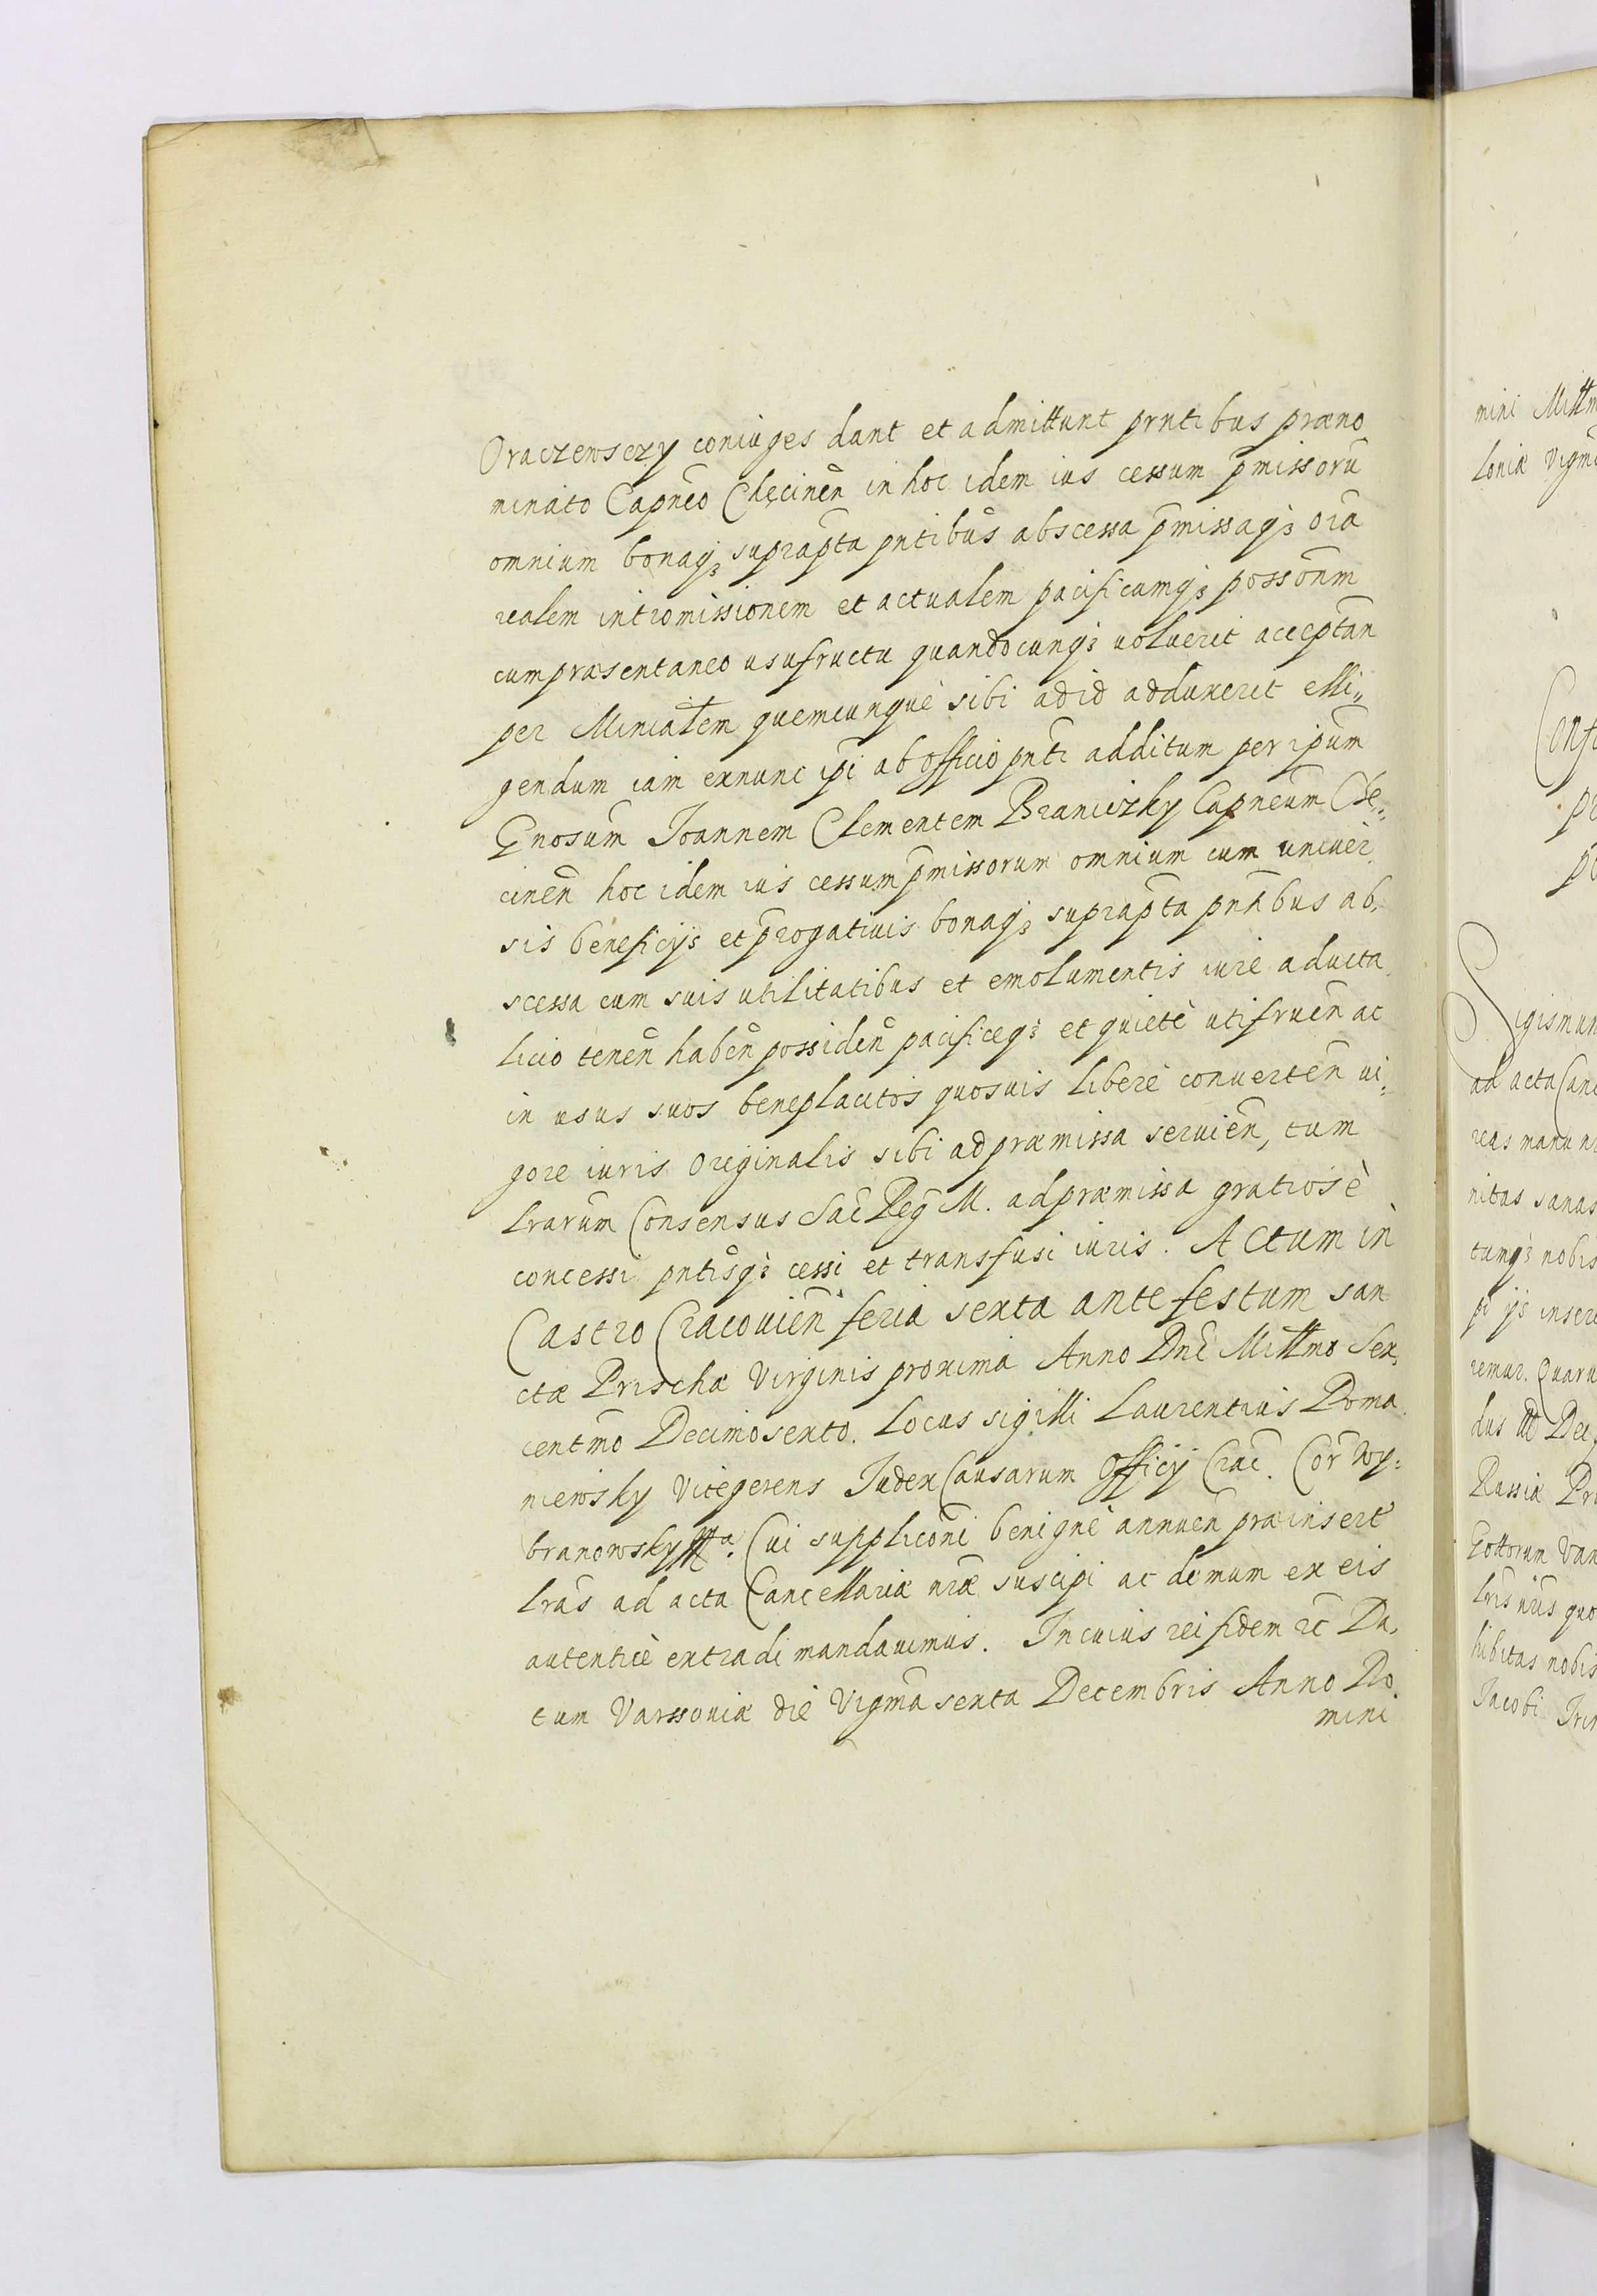 Oraczewsczy coniuges dant et admittunt prntibus præno
minato Capnēo Chęcinēn in hoc idem ius cessum p̄missorū
omnium bonaq₃ suprap̄ta pntibus abscessa p̄missaq₃ oīa
realem intromissionem et actualem pacificamq₃ possōnm
cum præsentaneo usufructu quandocunq₃ voluerit acceptan̄
per Minialem quemcunquè sibi ad id adduxerit elli„
gendum iam exnunc ip̄i ab officio pn̄ti additum per ipūm
Gnosum Joannem Clementem Braniczky Capneūm Che„
cinēn hoc idem ius cessum p̄missorum omnium cum univer
sis beneficÿs et p̄rogativis bonaq₃ suprap̄ta pntibus ab,
scessa cum suis utilitatibus et emolumentis iure aducta
licio tenēn habēn possidēn pacificeq₃ et quietè utifruēn ac
in usus suos beneplacitos quosuis liberè convertēn vi„
gore iuris originalis sibi ad præmissa serviēn, tum
lrarūm Consensus Sac̄ Reg̃ M. ad præmissa gratiosè
concessi pntisq₃ cessi et transfusi iuris. Actum in
Castro Cracoviēn feria sexta ante festum san
ctæ Prischæ Virginis proxima Anno Dn̄i Millmo Sex,
centmō Decimosexto. Locus sigilli Laurentius Roma
niewsky Vicegerens Judex Causarum Officÿ Crac̄. Cor̄ Wy„
branowsky Mp̄a. Cui supplicōni benignè annuēn præinsert̄
lrās ad acta Cancellariæ nrǣ suscipi ac demum ex eis
autenticè extradi mandavimus. In cuius rei fidem &c̄ Da,
tum Varssoviæ die Vigmā sexta Decembris Anno Do
mini
mini Millm
loniæ Vigm
Conf
pr
pe
Sigismun
ad acta Canc
reas manu n
nitas sanas
tumq₃ nobis
pi ÿs insere
remur. Quaru
dus III Dei
Russiæ Pru
Gottorum Van
lris nr̄is quo
hibitas nobis
Jacobi